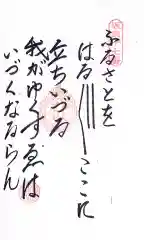 ふるさとを
はる〴〵ここに
立ちいづる
我がゆくすゑは
いづくなるらん